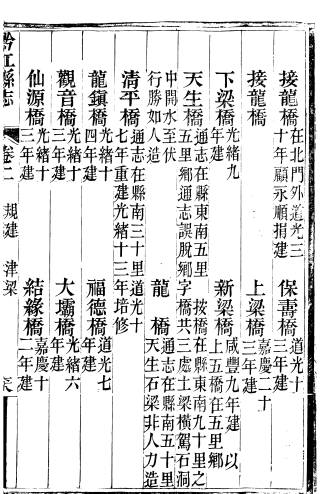 接龍橋 在北門外道光三十年顧永順捐建 保壽橋 道光十三年建
接龍橋 上梁橋 嘉慶二十三年建
下梁橋 光緒九年建 新梁橋 咸豐九年建 以上五橋在五里鄉
天生橋 通志在縣東南五里 按橋在縣東南九十里之五里鄉通志誤脫鄉字橋共三處土梁橫駕石洞
中開水至伏行勝如人造 龍橋 通志在縣南五十里天生石梁非人力造
清平橋 通志在縣南三十里道光十七年重建光緒十三年培修
龍鎮橋 光緒十四年建 福德橋 道光七年建
觀音橋 光緒十三年建 大壩橋 光緒六年建
仙源橋 光緒十三年建 結緣橋 嘉慶十二年建
黔江縣志 卷二 規建 津梁